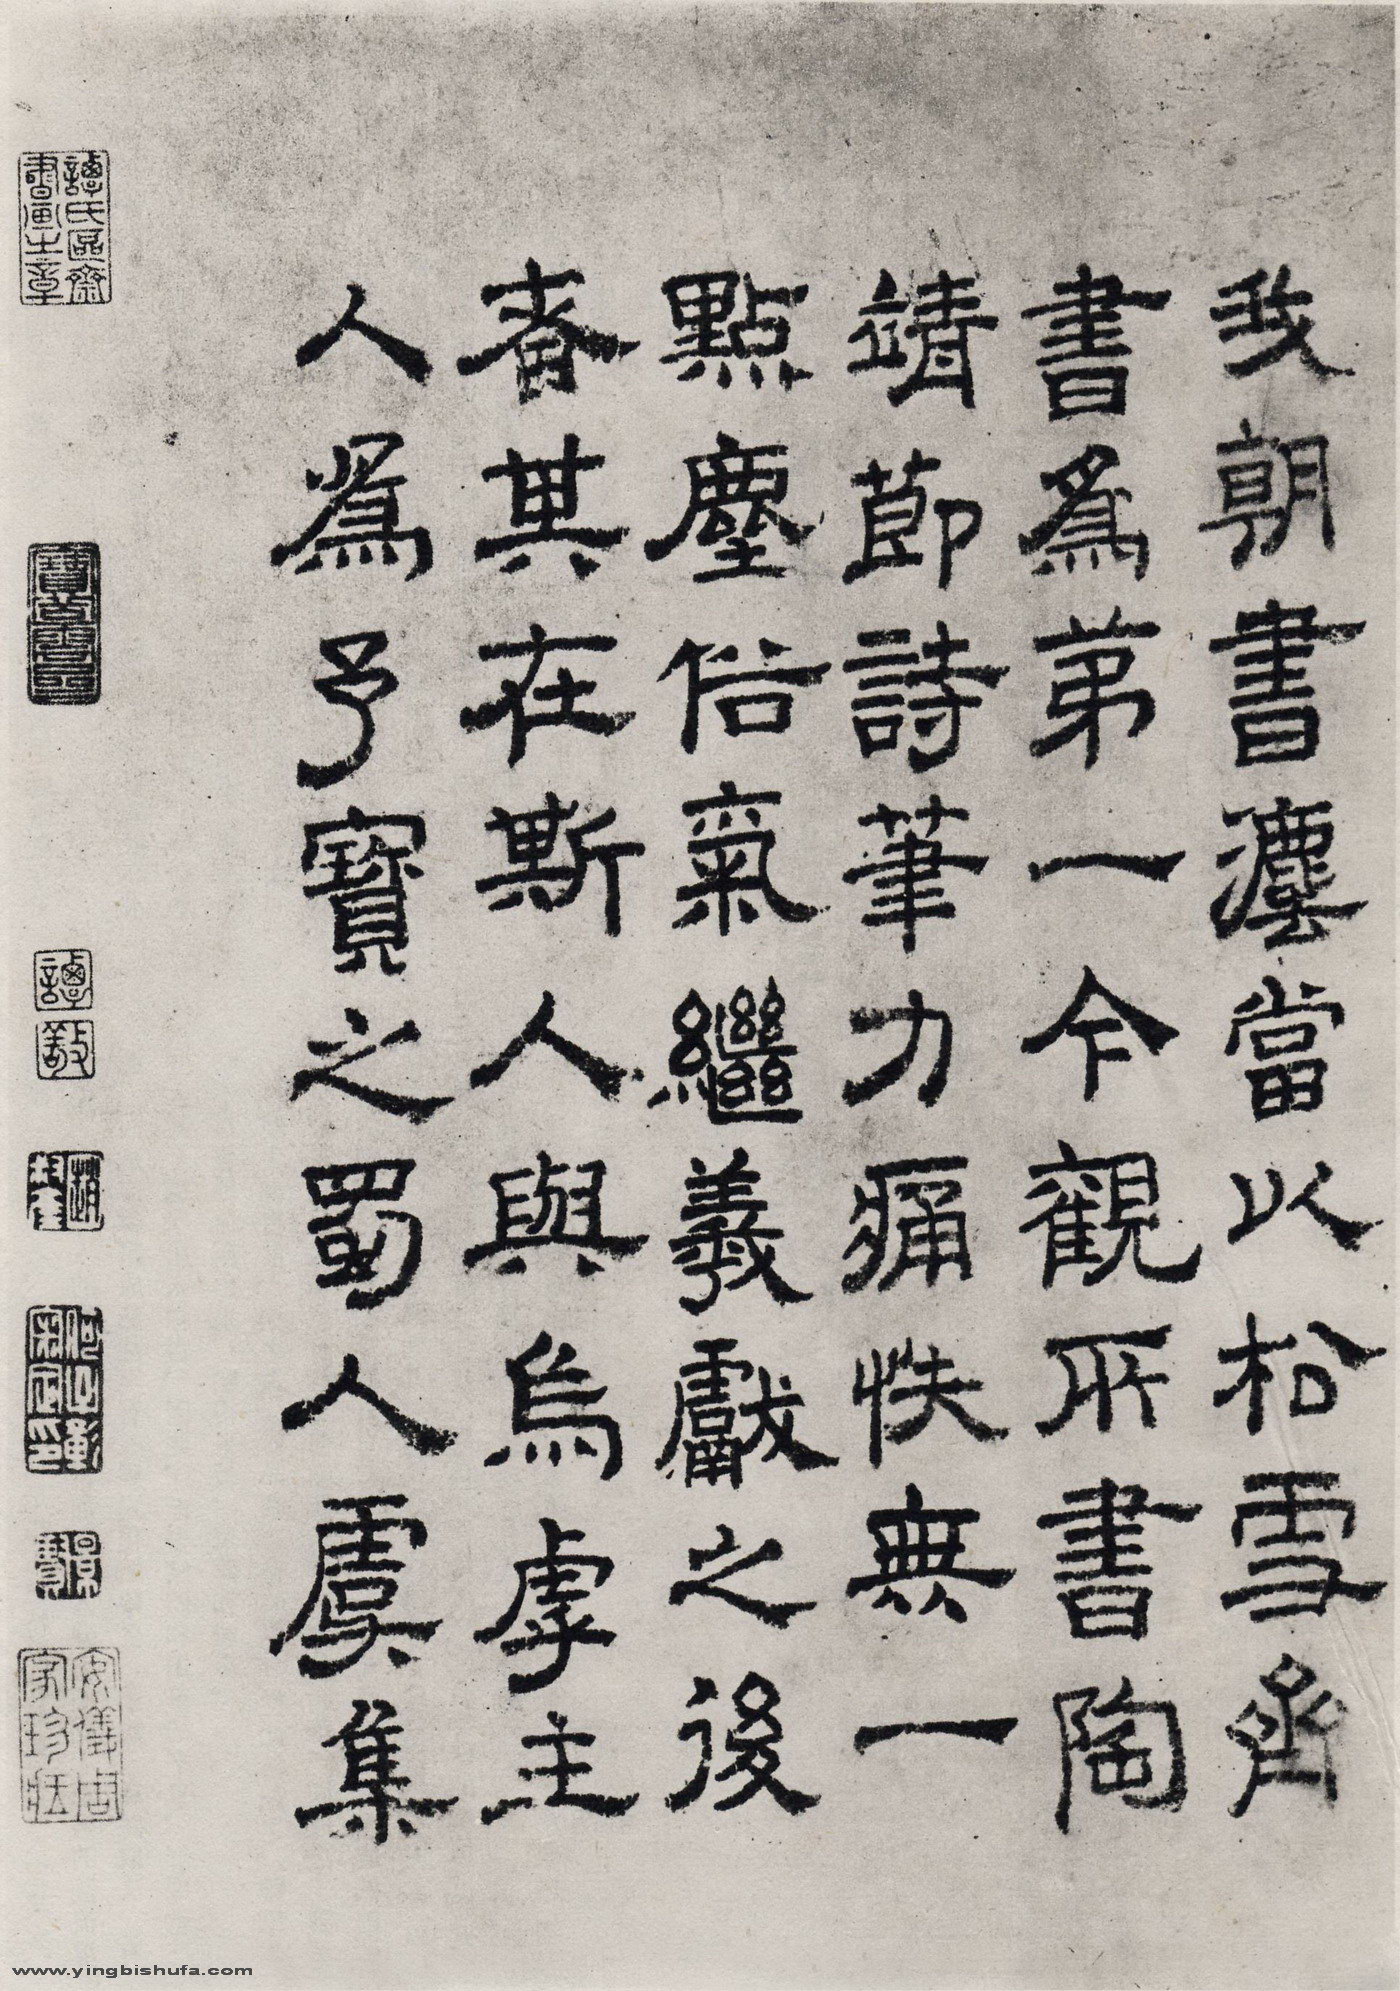 我朝書㕓當以松雪齋
書爲弟一今觀所書陶
靖節詩筆力痛快無一
點塵俗氣繼羲獻之後
者其在斯人與烏虖主
人爲予寶之蜀人虞集
譚氏區齋書畫之章
譚敬
安儀周家珍藏
www.yingbishufa.com